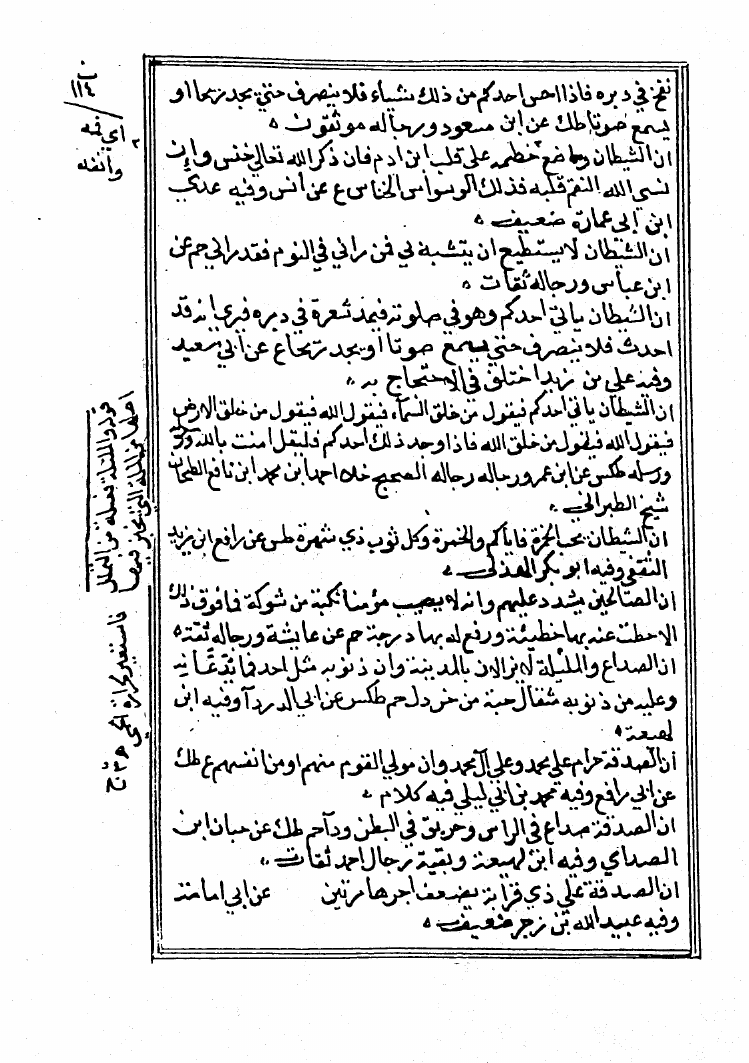 نفخ في دبره فاذا احس احدكم من ذلك بشياء فلا ينصرف حتي يجد ريحا او
يسمع صوتا طك عن ابن مسعود ورجاله موثقون
ان الشيطان واضع خطمه علي قلب ابن ادم فان ذكر الله تعالي خنس وان
نسي الله التقم قلبه فذلك الوسواس الخناس ع عن انس وفيه عدي
ابن ابي عمارة ضعيف
ان الشيطان لا يستطيع ان يتشبه بي فمن راني في النوم فقد راني حم عن
ابن عباس ورجاله ثقات
ان الشيطان ياتي احدكم وهو في صلوته فيمد شعرة في دبره فيري انه قد
احدث فلا ينصرف حتي يسمع صوتا او يجد ريحا ع عن ابي سعيد
وفيه علي بن زيد اختلق في الاحتجاج به
ان الشيطان ياتي احدكم فيقول من خلق السماء فيقول الله فيقول من خلق الارض
فيقول الله فيقول من خلق الله فاذا وجد ذلك احدكم فليقل امنت بالله
ورسله طكس عن ابن عمرو رجاله رجاله الصحيح خلا احمد ابن محمد ابن نافع الطحان
شيخ الطبراني
ان الشيطان يحب الحمرة فاياكم والحمرة وكل ثوب ذي شهرة طس عن رافع ابن يزيد
الثقفي وفيه ابو بكر الهذلي
ان الصالحين يشدد عليهم وانه لا يصيب مؤمنا نكبة من شوكة فما فوق ذلك
الا حطت عنه بها خطيئة ورفع له بها درجة حم عن عايشة ورجاله ثقة
ان الصداع والمليلة لا يزالان بالمدينة وان ذنوبه مثل احد فما يدعانه
وعليه من ذنوبه مثقال حبة من خردل حم طكس عن ابي الدرداء وفيه ابن
لهيعة
ان الصدقة حرام علي محمد وعلي آل محمد وان مولي القوم منهم او من انفسهم ع طك
عن ابي رافع وفيه محمد بن ابي ليلي فيه كلام
ان الصدقة صداع في الراس وحريق في البطن وداء حم طك عن حبان ابن
الصداي وفيه ابن لهيعة وبقية رجال احمد ثقات
ان الصدقة علي ذي قرابة يضعف اجرها مرتين عن ابي امامة
وفيه عبيد الله بن زحر ضعيف
١١٤
اي فمه
وانفه
اصلها من الملة التي يخبز فيها
فاستعير لحرارة الحمي